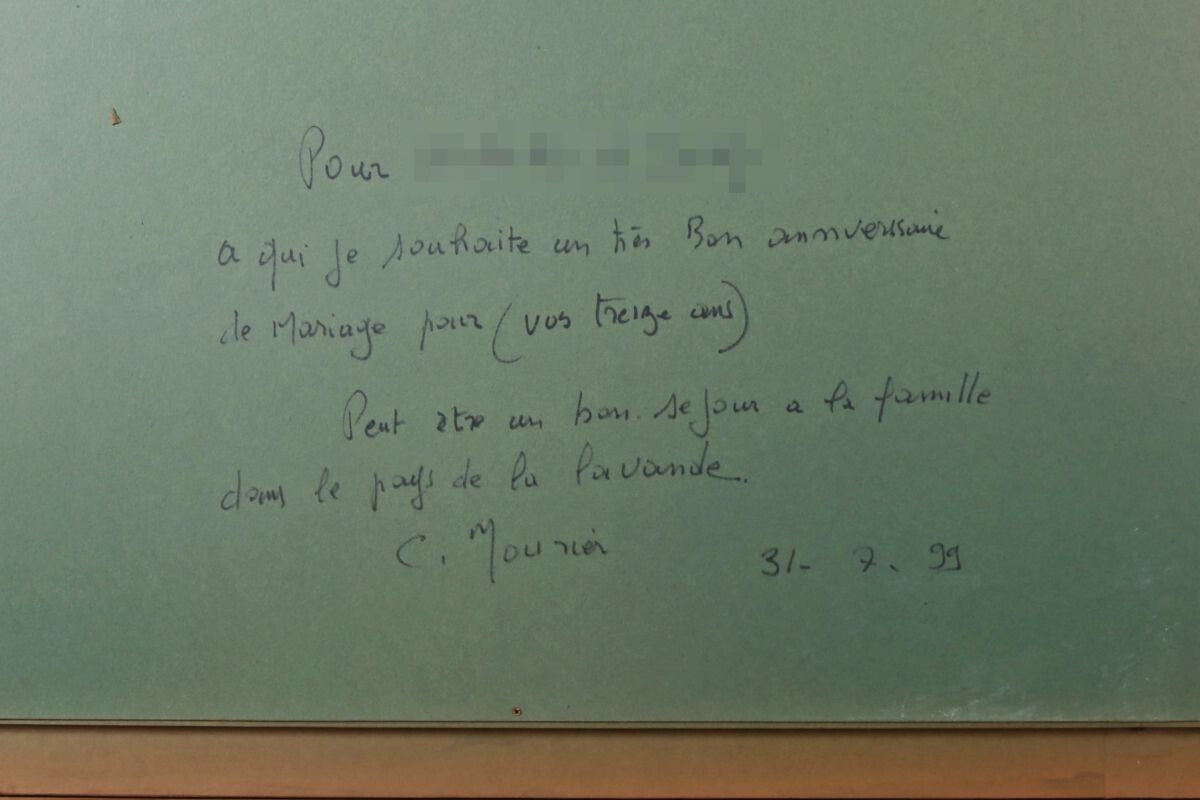 Pour
a qui je souhaite un très Bon anniverssaire
de Mariage pour (vos treize ans)
Peut etre un bon sejour a la famille
dans le pays de la lavande.
C. Mourier 31- 7. 99